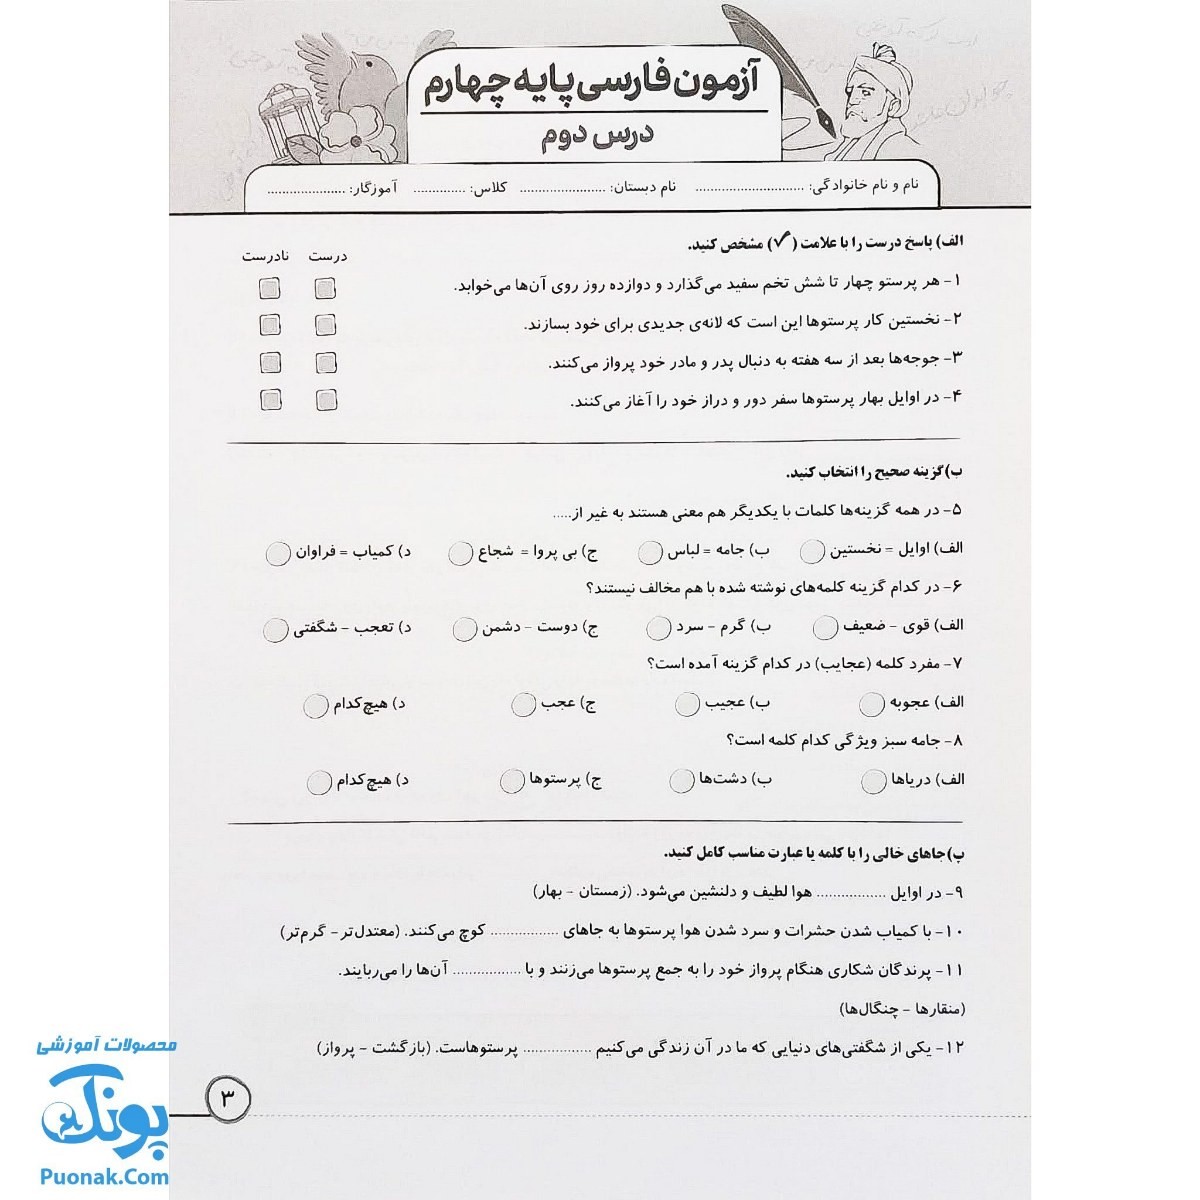 آزمون فارسی پایه چهارم
درس دوم
نام و نام خانوادگی: .............................. نام دبستان: ........................ کلاس: .............. آموزگار: ......................
الف) پاسخ درست را با علامت (✓) مشخص کنید.
درست نادرست
۱- هر پرستو چهار تا شش تخم سفید می‌گذارد و دوازده روز روی آن‌ها می‌خوابد.
۲- نخستین کار پرستوها این است که لانه‌ی جدیدی برای خود بسازند.
۳- جوجه‌ها بعد از سه هفته به دنبال پدر و مادر خود پرواز می‌کنند.
۴- در اوایل بهار پرستوها سفر دور و دراز خود را آغاز می‌کنند.
ب) گزینه صحیح را انتخاب کنید.
۵- در همه گزینه‌ها کلمات با یکدیگر هم معنی هستند به غیر از.....
الف) اوایل = نخستین ب) جامه = لباس ج) بی پروا = شجاع د) کمیاب = فراوان
۶- در کدام گزینه کلمه‌های نوشته شده با هم مخالف نیستند؟
الف) قوی - ضعیف ب) گرم - سرد ج) دوست - دشمن د) تعجب - شگفتی
۷- مفرد کلمه (عجایب) در کدام گزینه آمده است؟
الف) عجوبه ب) عجیب ج) عجب د) هیچ‌کدام
۸- جامه سبز ویژگی کدام کلمه است؟
الف) دریاها ب) دشت‌ها ج) پرستوها د) هیچ‌کدام
پ) جاهای خالی را با کلمه یا عبارت مناسب کامل کنید.
۹- در اوایل ................. هوا لطیف و دلنشین می‌شود. (زمستان - بهار)
۱۰- با کمیاب شدن حشرات و سرد شدن هوا پرستوها به جاهای ................. کوچ می‌کنند. (معتدل‌تر - گرم‌تر)
۱۱- پرندگان شکاری هنگام پرواز خود را به جمع پرستوها می‌زنند و با ................. آن‌ها را می‌ربایند.
(منقارها - چنگال‌ها)
۱۲- یکی از شگفتی‌های دنیایی که ما در آن زندگی می‌کنیم ................. پرستوهاست. (بازگشت - پرواز)
۳
محصولات آموزشی
پونک
Puonak.Com